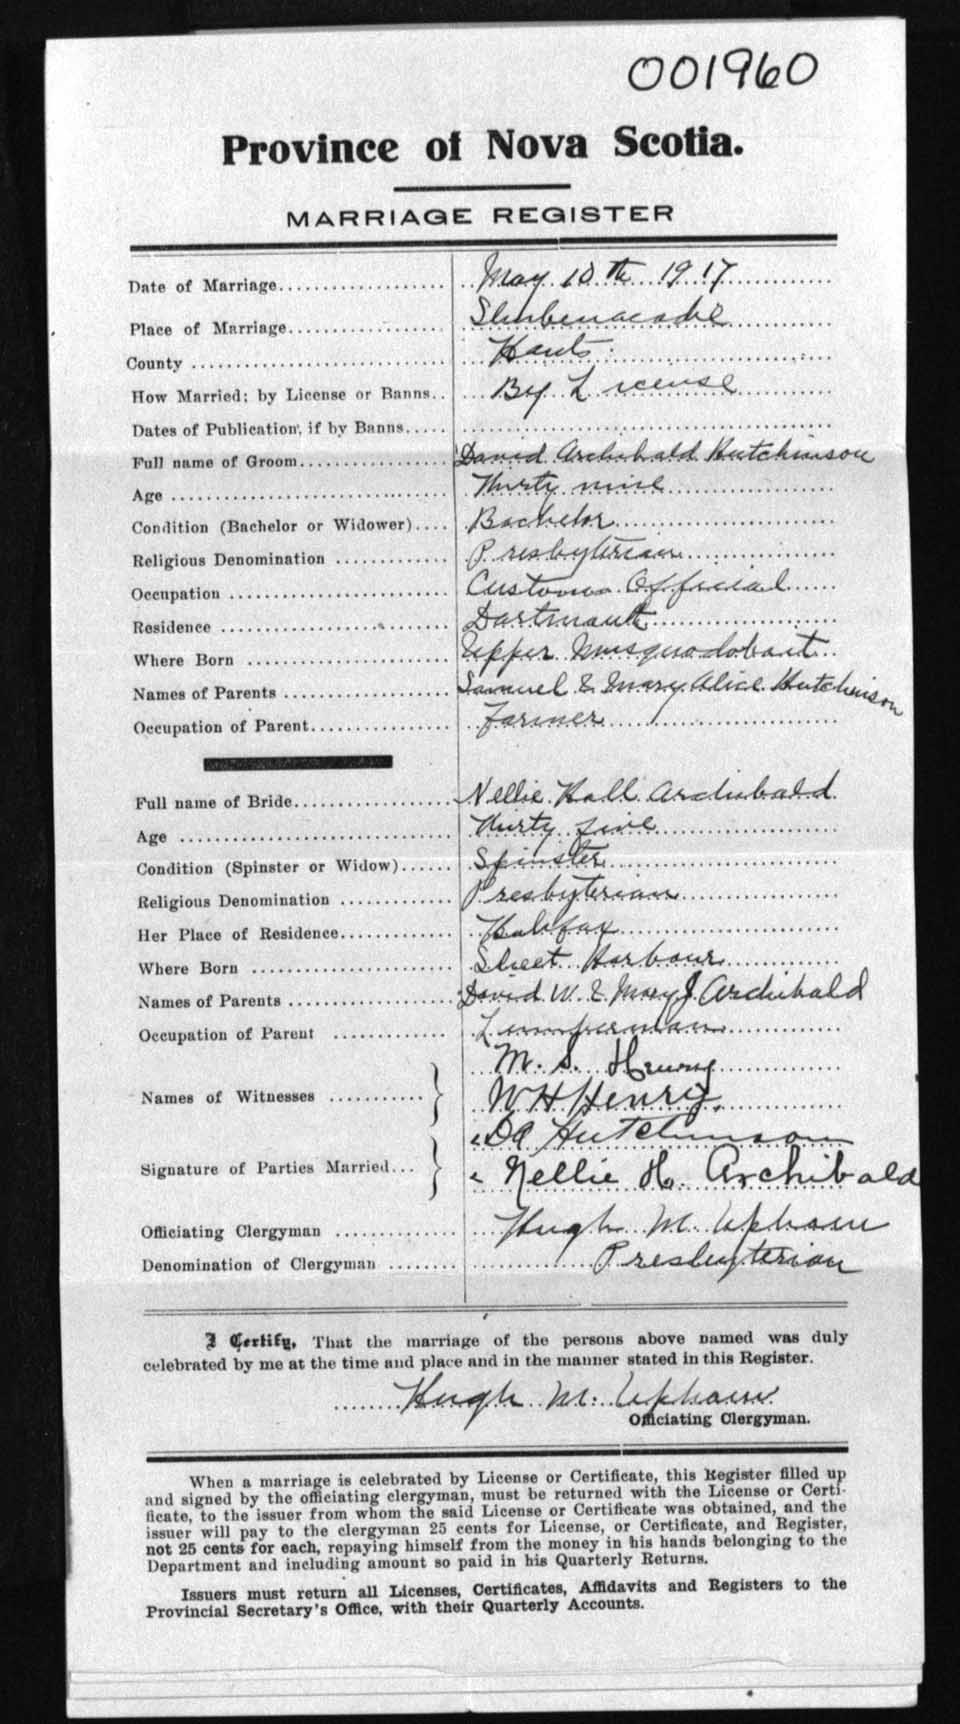 001960
Province of Nova Scotia.
MARRIAGE REGISTER
Date of Marriage.................... May 10th 1917
Place of Marriage.................. Shubenacadie
County ............................ Hants
How Married; by License or Banns.. By License
Dates of Publication, if by Banns.....
Full name of Groom................. David Archibald Hutchinson
Age ............................... Thirty nine
Condition (Bachelor or Widower).... Bachelor
Religious Denomination ............. Presbyterian
Occupation ........................ Customs Official
Residence ......................... Dartmouth
Where Born ........................ Upper Musquodoboit
Names of Parents .................. Samuel & Mary Alice Hutchinson
Occupation of Parent................ Farmer
Full name of Bride.................. Nellie Hall Archibald
Age ............................... Thirty five
Condition (Spinster or Widow)...... Spinster
Religious Denomination ............. Presbyterian
Her Place of Residence............. Halifax
Where Born ........................ Sheet Harbour
Names of Parents .................. David W. & Mary J. Archibald
Occupation of Parent ............. Lumberman
M. S. Henry
Names of Witnesses ...........
W H Henry
D A Hutchinson
Signature of Parties Married...
Nellie H. Archibald
Officiating Clergyman ............. Hugh M. Upham
Denomination of Clergyman ........ Presbyterian
I Certify, That the marriage of the persons above named was duly
celebrated by me at the time and place and in the manner stated in this Register.
Hugh M. Upham
Officiating Clergyman.
When a marriage is celebrated by License or Certificate, this Register filled up
and signed by the officiating clergyman, must be returned with the License or Certi-
ficate, to the issuer from whom the said License or Certificate was obtained, and the
issuer will pay to the clergyman 25 cents for License, or Certificate, and Register,
not 25 cents for each, repaying himself from the money in his hands belonging to the
Department and including amount so paid in his Quarterly Returns.
Issuers must return all Licenses, Certificates, Affidavits and Registers to the
Provincial Secretary's Office, with their Quarterly Accounts.